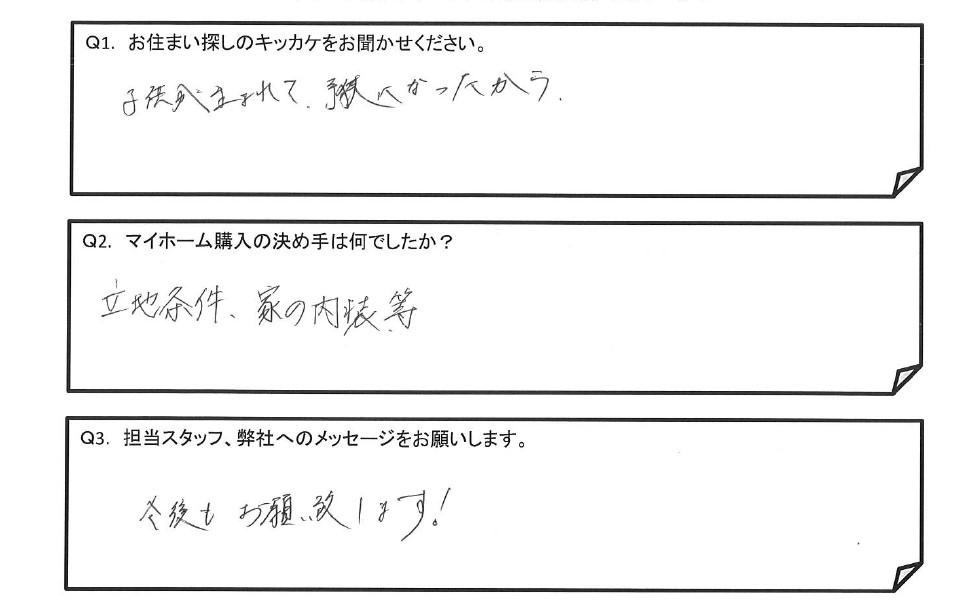 Q1. お住まい探しのキッカケをお聞かせください。
子供が生まれて、手狭になったから.
Q2. マイホーム購入の決め手は何でしたか?
立地条件、家の内装等
Q3. 担当スタッフ、弊社へのメッセージをお願いします。
今後もお願い致します!